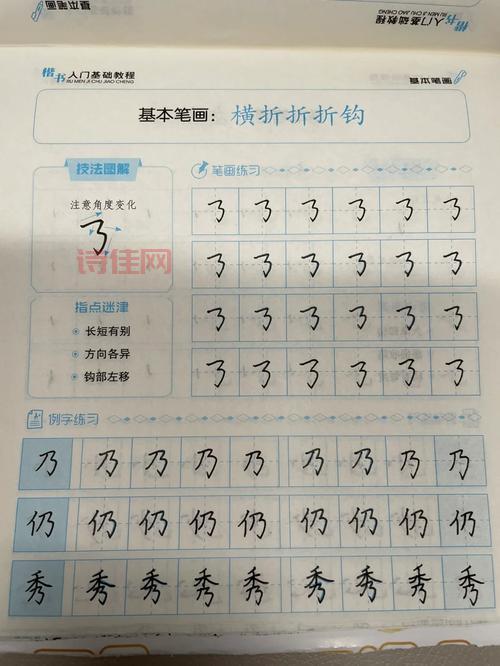 楷书入门基础教程
RU MEN JI CHU JIAO CHENG
基本笔画
楷书入门基础教程
RU MEN JI CHU JIAO CHENG
基本笔画
基本笔画：横折折折钩
技法图解
注意角度变化
诗佳网
指点迷津
长短有别
方向各异
钩部左移
笔画练习
例字练习
乃 乃 乃 乃 乃 乃 乃 乃 乃
仍 仍 仍 仍 仍 仍 仍 仍 仍
秀 秀 秀 秀 秀 秀 秀 秀 秀